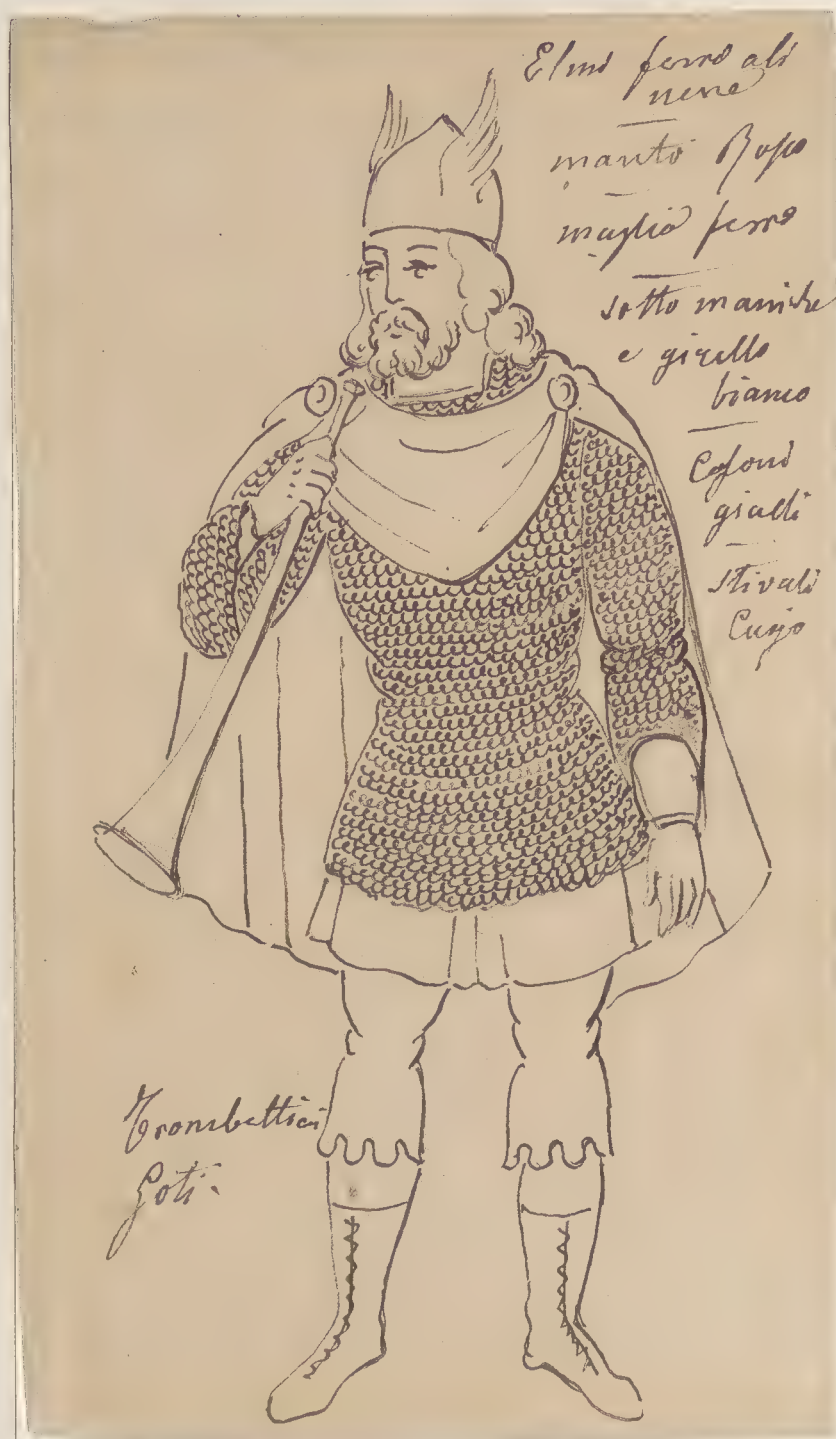 Elmi ferro ali
nere
manto Rosso
maglia ferro
sotto maniche
e girello
bianco
Calzoni
gialli
stivali
Cuojo
Trombettieri
Goti.